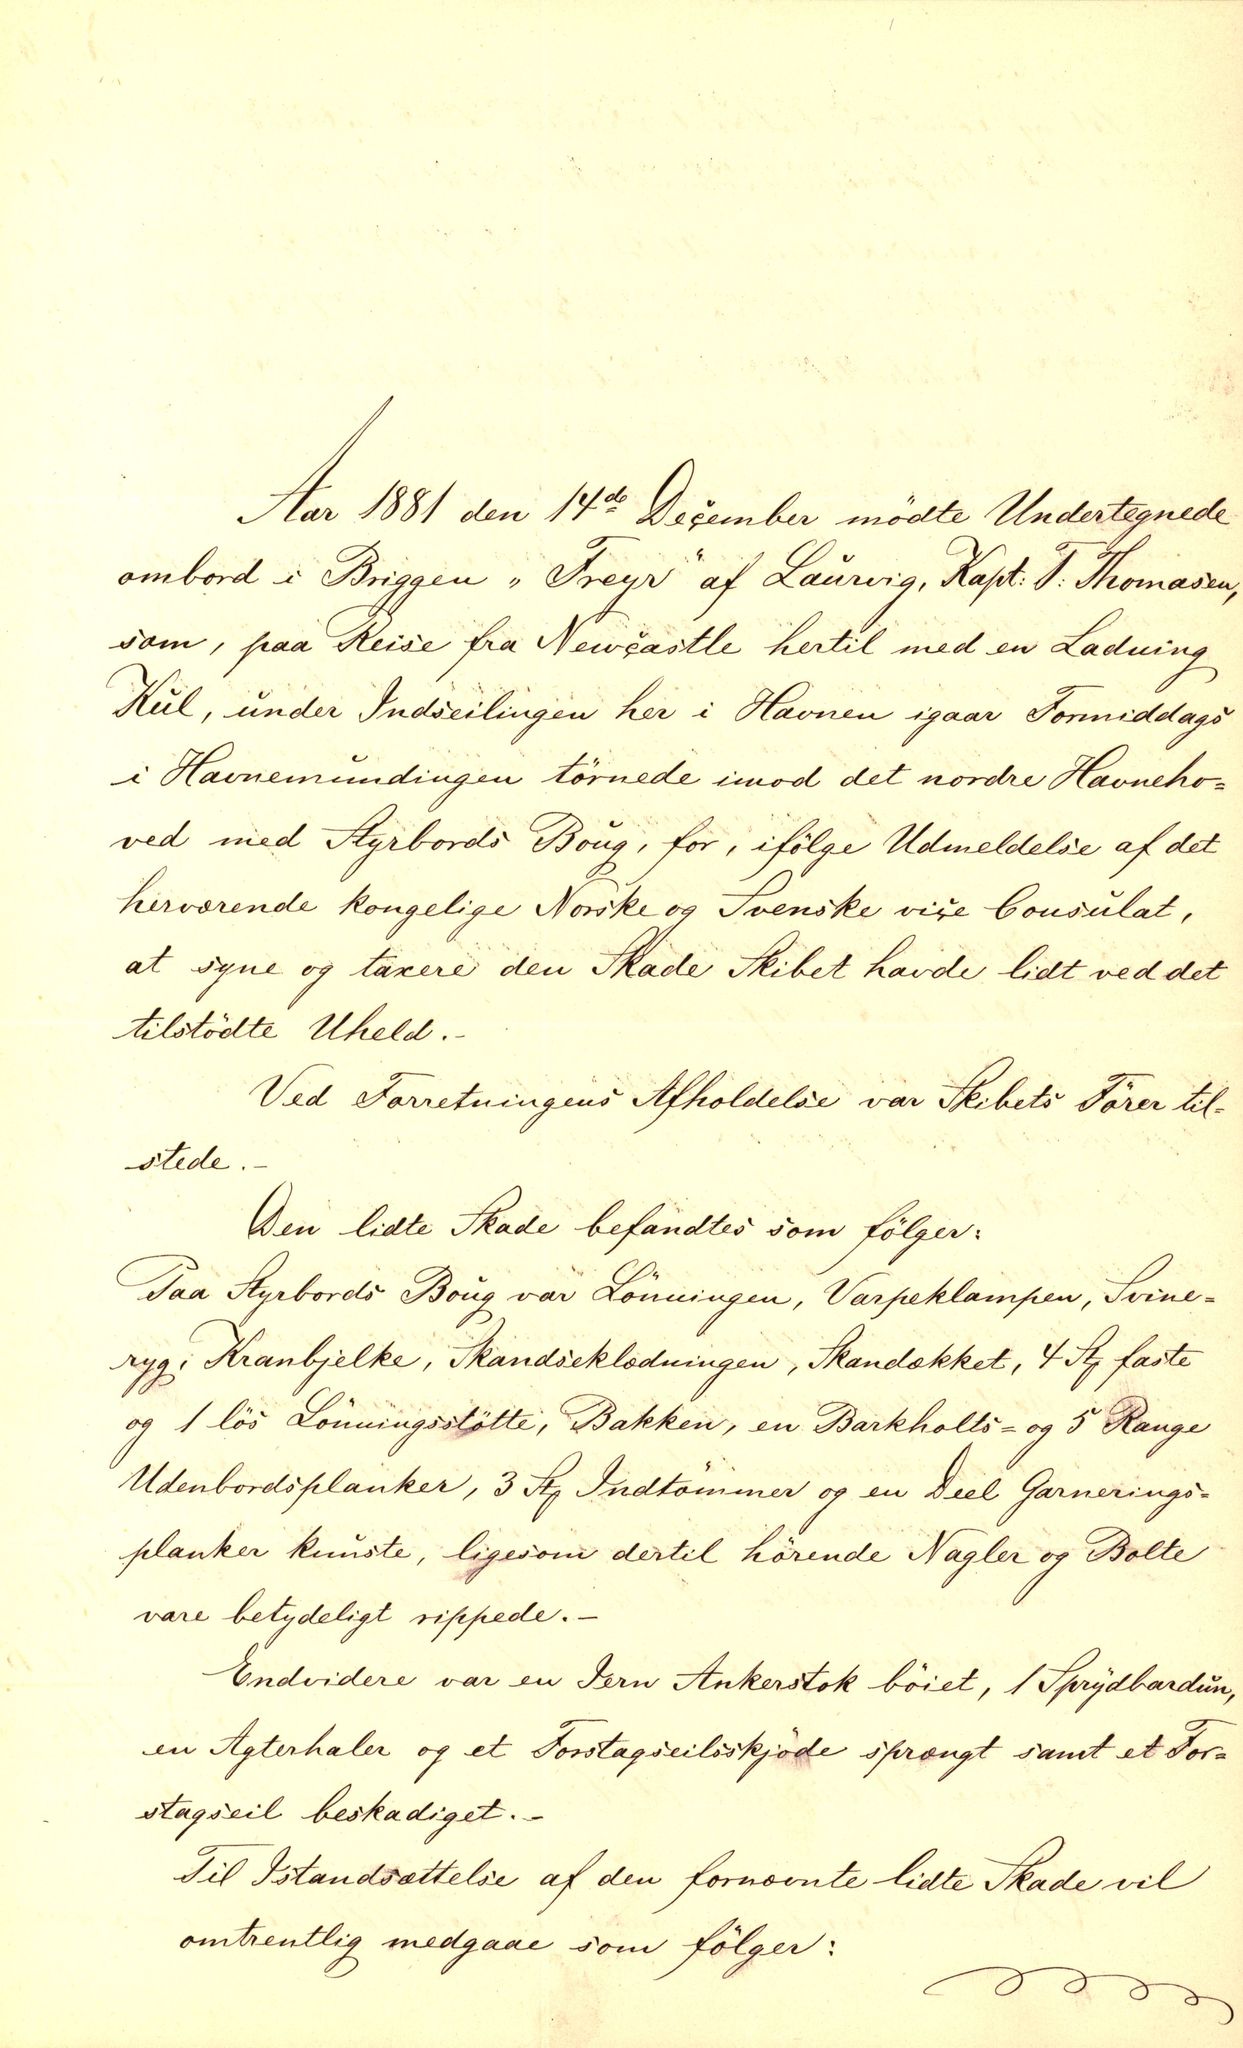 Aar 1881 den 14de December mödte Undertegnede
ombord i Briggen „Freyr" af Laurvig, Kapt: T: Thomasen,
som, paa Reise fra Newcastle hertil med en Ladning
Kul, under Indseilingen her i Havnen igaar Formiddags
i Havnemundingen törnede imod det nordre Havneho=
ved med Styrbords Boug, for, ifölge Udmeldelse af det
herværende kongelige Norske og Svenske vice Consulat,
at syne og taxere den Skade Skibet havde lidt ved det
tilstödte Uheld.-
Ved Forretningens Afholdelse var Skibets Förer til-
stede.-
Den lidte Skade befandtes som fölger:
Paa Styrbords Boug var Lönningen, Varpeklampen, Svine=
ryg, Kranbjelke, Skandseklædningen, Skandækket, 4 Stk faste
og 1 lös Lönningsstötte, Bakken, en Barkholts= og 5 Range
Udenbordsplanker, 3 Stk Indtömmer og en Deel Garnerings=
planker knuste, ligesom dertil hörende Nagler og Bolte
vare betydeligt rippede.-
Endvidere var en Jern Ankerstok böiet, 1 Sprydbardun,
en Agterhaler og et Forstagseilsskjöde sprængt samt et For=
stagseil beskadiget.-
Til Istandsættelse af den fornævnte lidte Skade vil
omtrentlig medgaae som fölger: